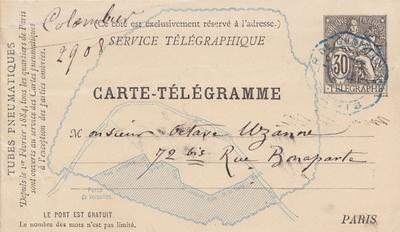 Colombier
2908
(Ce côté est exclusivement réservé à l'adresse.)
SERVICE TÉLÉGRAPHIQUE
30
TÉLÉGRAPHE
CARTE-TÉLÉGRAMME
TUBES PNEUMATIQUES
Depuis le 1er Février 1884, tous les quartiers de Paris
sont ouverts au service des Cartes pneumatiques
à l'exception des parties ombrées.
Monsieur Octave Uzanne
72 bis Rue Bonaparte
Porte
de Versailles
LE PORT EST GRATUIT
Le nombre des mots n'est pas limité.
PARIS